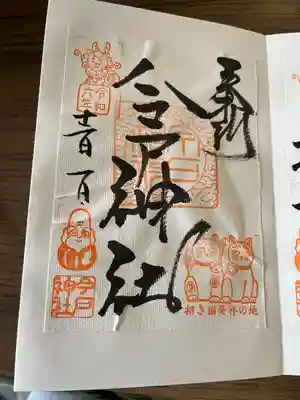 奉拝
今戸神社
令和
六年
十一月一日
招き猫発祥の地
今戸
神社